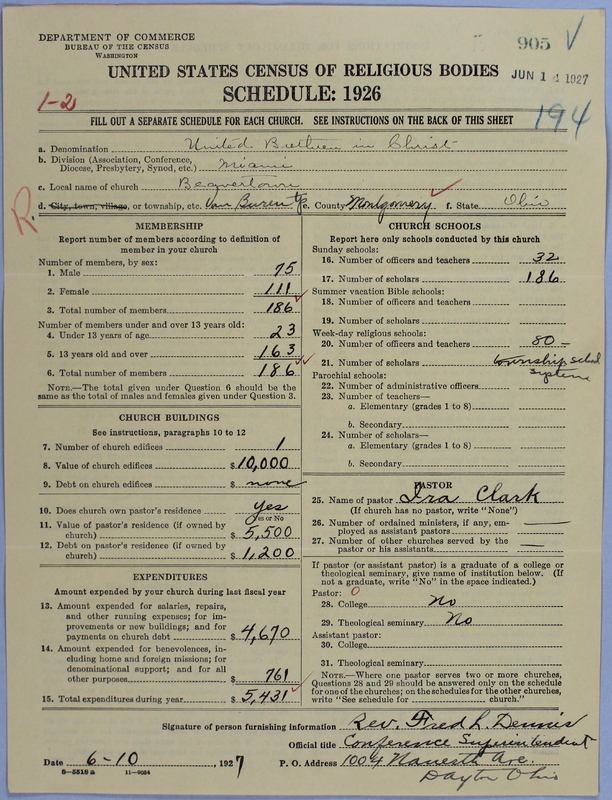 DEPARTMENT OF COMMERCE
BUREAU OF THE CENSUS
WASHINGTON
905 V
UNITED STATES CENSUS OF RELIGIOUS BODIES
JUN 14 1927
SCHEDULE: 1926
1-2
194
FILL OUT A SEPARATE SCHEDULE FOR EACH CHURCH. SEE INSTRUCTIONS ON THE BACK OF THIS SHEET
a. Denomination United Brethren in Christ
b. Division (Association, Conference, Diocese, Presbytery, Synod, etc.) Miami
c. Local name of church Beavertown
R
d. City, town, village, or township, etc. Van Buren Tp e. County Montgomery f. State Ohio
MEMBERSHIP
Report number of members according to definition of
member in your church
Number of members, by sex:
1. Male 75
2. Female 111
3. Total number of members 186
Number of members under and over 13 years old:
4. Under 13 years of age 23
5. 13 years old and over 163
6. Total number of members 186
NOTE.—The total given under Question 6 should be
the same as the total of males and females given under Question 3.
CHURCH BUILDINGS
See instructions, paragraphs 10 to 12
7. Number of church edifices 1
8. Value of church edifices $10,000
9. Debt on church edifices $ none
10. Does church own pastor's residence? Yes
Yes or No
11. Value of pastor's residence (if owned by
church) $ 5,500
12. Debt on pastor's residence (if owned by
church) $ 1,200
EXPENDITURES
Amount expended by your church during last fiscal year
13. Amount expended for salaries, repairs,
and other running expenses; for im-
provements or new buildings; and for
payments on church debt $ 4,670
14. Amount expended for benevolences, in-
cluding home and foreign missions; for
denominational support; and for all
other purposes $ 761
15. Total expenditures during year $ 5,431
CHURCH SCHOOLS
Report here only schools conducted by this church
Sunday schools:
16. Number of officers and teachers 32
17. Number of scholars 186
Summer vacation Bible schools:
18. Number of officers and teachers
19. Number of scholars
Week-day religious schools:
20. Number of officers and teachers 80 —
21. Number of scholars township school
system
Parochial schools:
22. Number of administrative officers
23. Number of teachers—
a. Elementary (grades 1 to 8)
b. Secondary
24. Number of scholars—
a. Elementary (grades 1 to 8)
b. Secondary
PASTOR
25. Name of pastor Ira Clark
(If church has no pastor, write "None")
26. Number of ordained ministers, if any, em-
ployed as assistant pastors —
27. Number of other churches served by the
pastor or his assistants —
If pastor (or assistant pastor) is a graduate of a college or
theological seminary, give name of institution below. (If
not a graduate, write "No" in the space indicated.)
Pastor: 0
28. College No
29. Theological seminary No
Assistant pastor:
30. College
31. Theological seminary
NOTE.—Where one pastor serves two or more churches,
Questions 28 and 29 should be answered only on the schedule
for one of the churches; on the schedules for the other churches,
write "See schedule for church."
Signature of person furnishing information Rev. Fred L. Dennis
Official title Conference Superintendent
Date 6-10, 1927 P. O. Address 1004 Ave.
Dayton Ohio
8—5518 a 11—9054